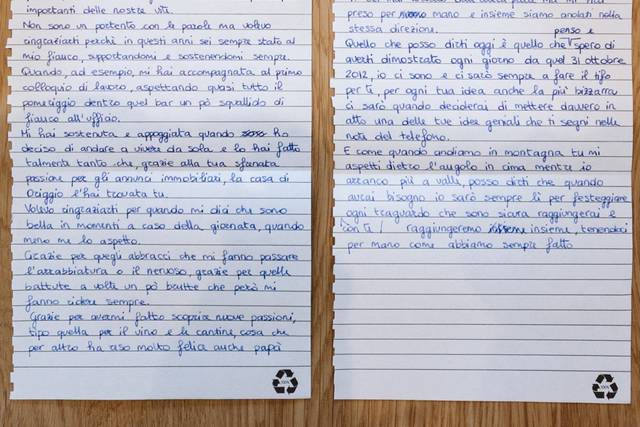 importanti delle nostre vite.
Non sono un portento con le parole ma volevo
ringraziarti perchè in questi anni sei sempre stato al
mio fianco, supportandomi e sostenendomi sempre.
Quando, ad esempio, mi hai accompagnata al primo
colloquio di lavoro, aspettando quasi tutto il
pomeriggio dentro quel bar un pò squallido di
fianco all'ufficio.
Mi hai sostenuta e appoggiata quando ho
deciso di andare a vivere da sola e lo hai fatto
talmente tanto che, grazie alla tua sfrenata
passione per gli annunci immobiliari, la casa di
Origgio l'hai trovata tu.
Volevo ringraziarti, per quando mi dici che sono
bella in momenti a caso della giornata, quando
meno me lo aspetto.
Grazie per quegli abbracci che mi fanno passare
l'arrabbiatura o il nervoso, grazie per quelle
battute a volte un pò brutte che però mi
fanno ridere sempre.
Grazie per avermi fatto scoprire nuove passioni,
tipo quella per il vino e le cantine, cosa che
per altro ha reso molto felice anche papà
preso per mano e insieme siamo andati nella
stessa direzione.
penso e
Quello che posso dirti oggi è quello che spero di
averti dimostrato ogni giorno da quel 31 ottobre
2012, io ci sono e ci sarò sempre a fare il tifo
per te, per ogni tua idea anche la più bizzarra
ci sarò quando deciderai di mettere davvero in
atto una delle tue idee geniali che ti segni nelle
note del telefono.
E come quando andiamo in montagna tu mi
aspetti dietro l'angolo in cima mentre io
arranco più a valle, posso dirti che quando
avrai bisogno io sarò sempre lì per festeggiare
ogni traguardo che sono sicura raggiungerai e
con te / raggiungeremo insieme insieme, tenendoci
per mano come abbiamo sempre fatto